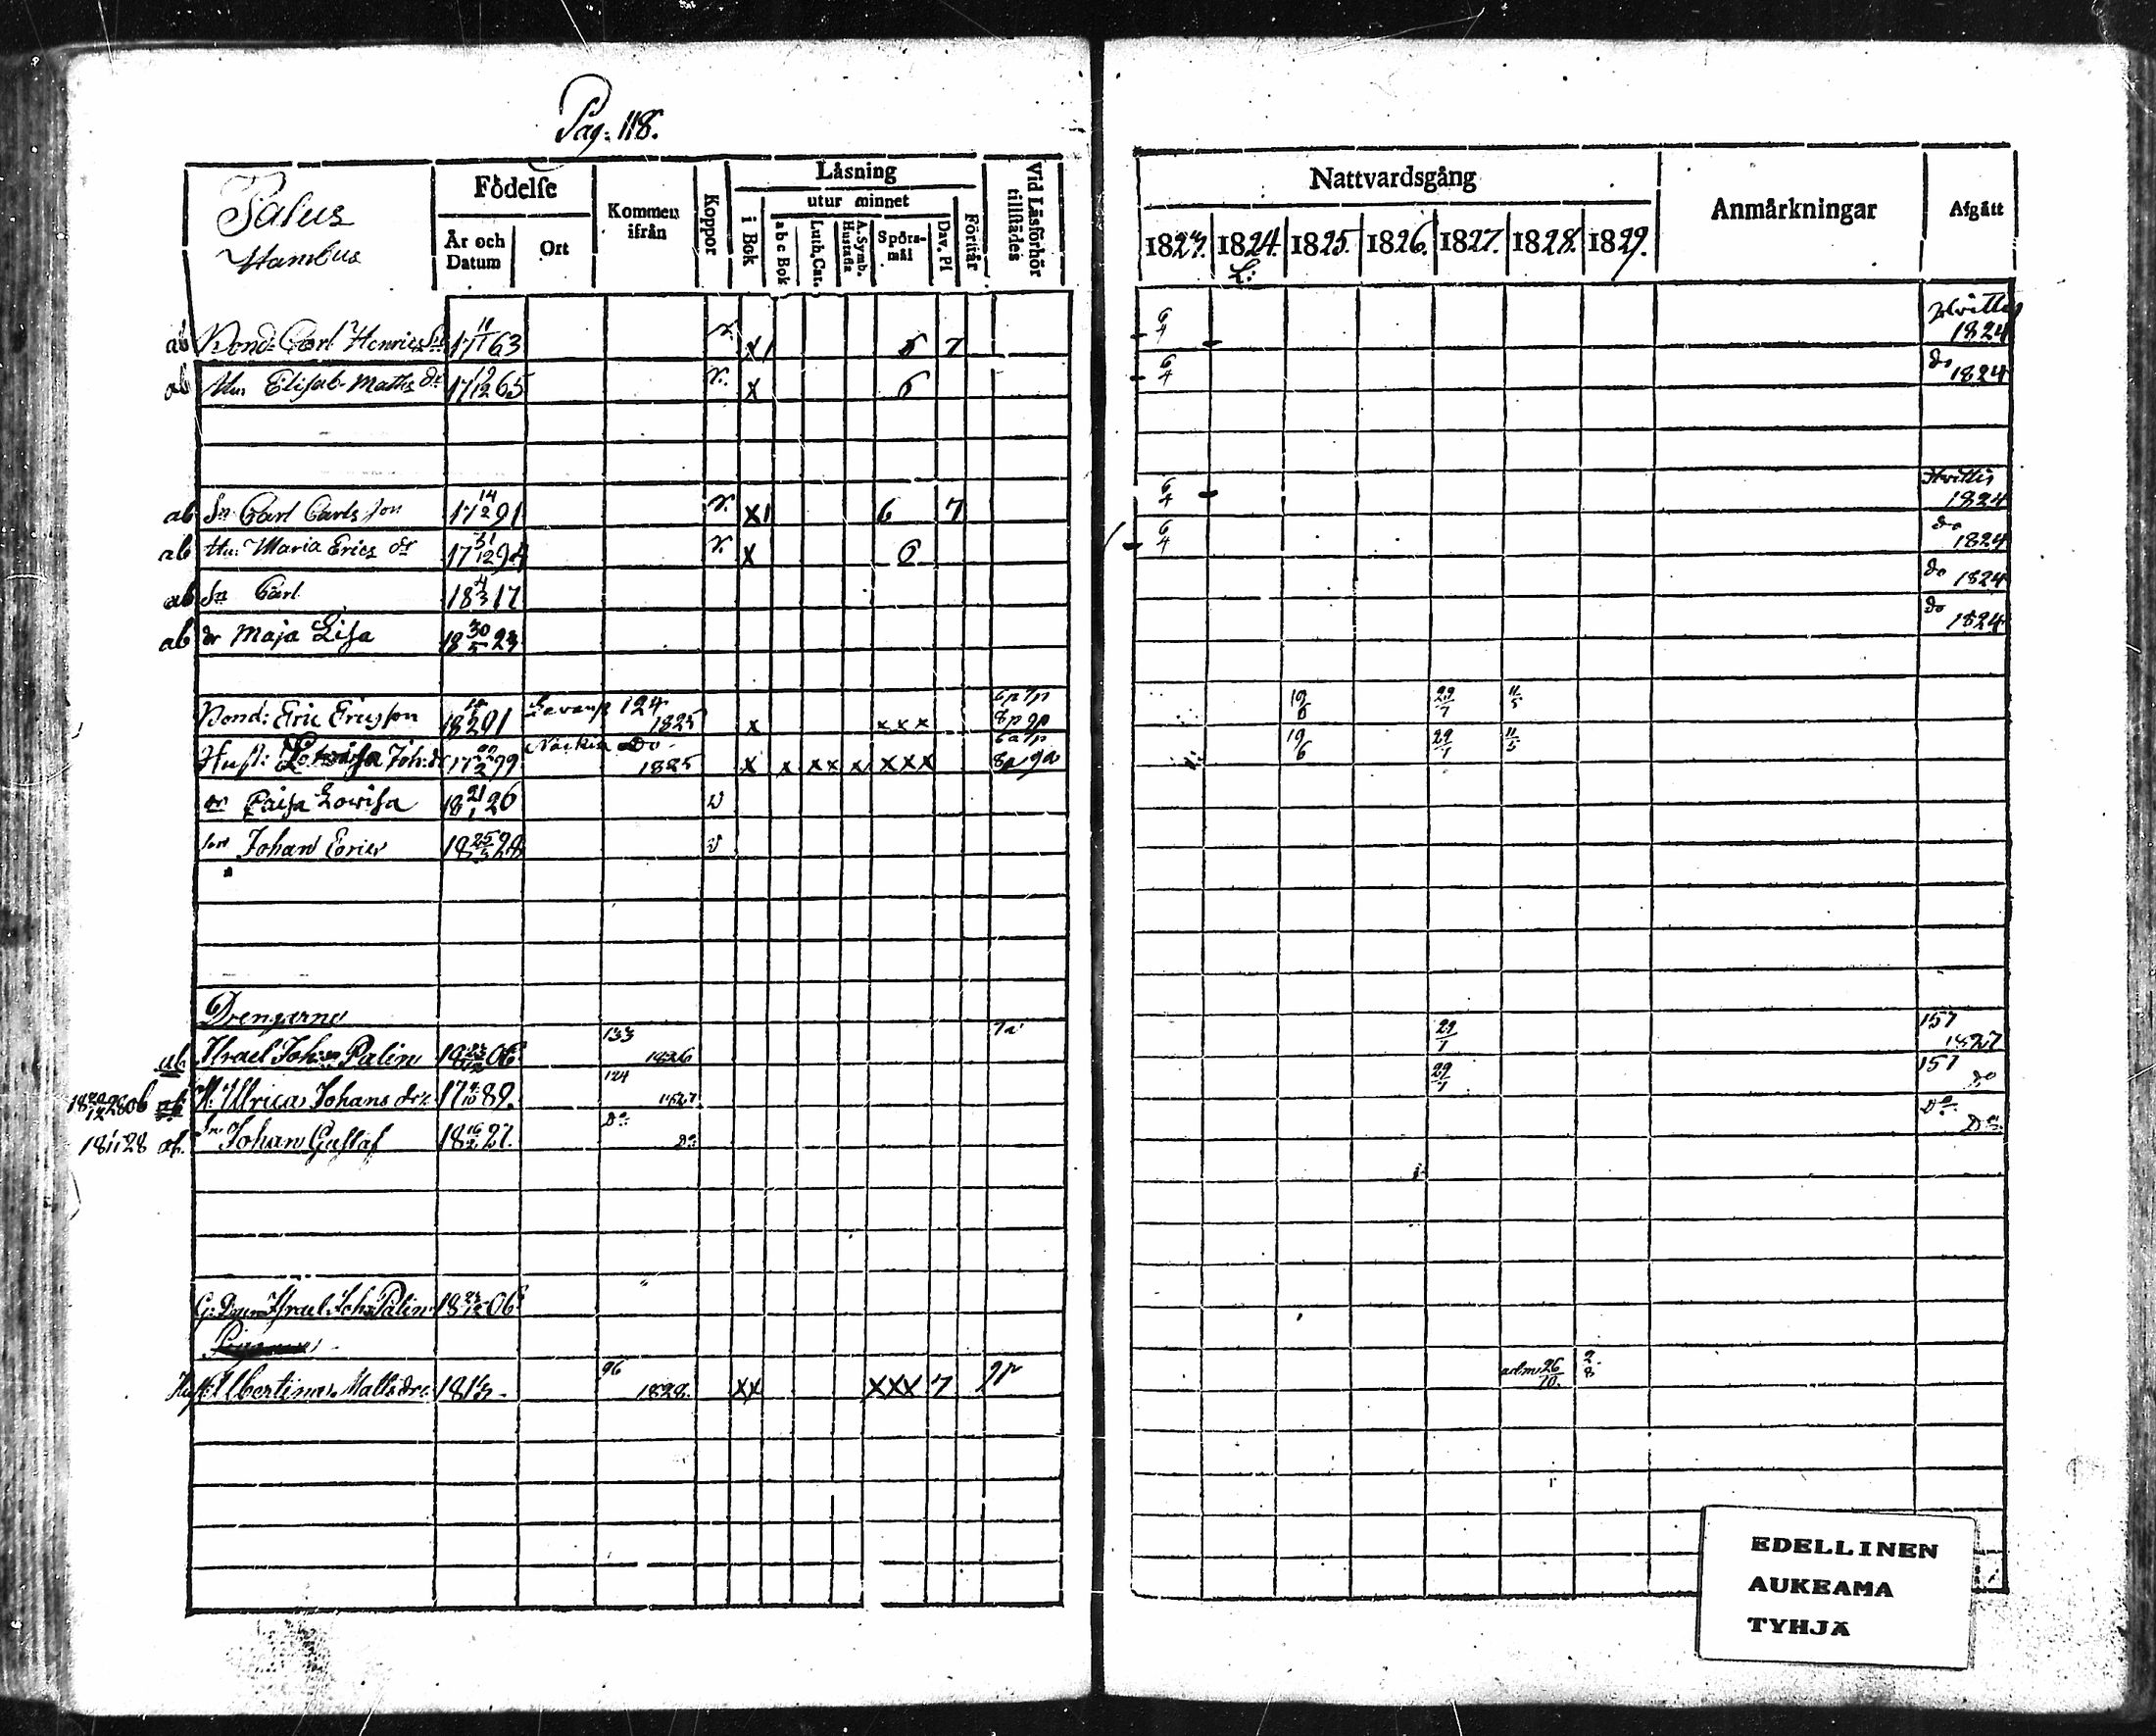 Pag: 118.
Palus
Hambus
Födelse
År och Datum
Ort
Kommen ifrån
Koppor
Läsning
i Bok
utur minnet
abc Bok
Luth. Cat.
A. Symb. Hustafla
Spörsmål
Dav. Ps
Förstår
Vid Läsförhör tillstädes
Nattvardsgång
1823. 1824. 1825. 1826. 1827. 1828. 1829.
Anmärkningar
Afgått
ab Bond: Carl Henrics 17 11/1 63 x 6 7 6/4 1824
ab Hu. Elisab. Matts dr 17 65 x 6 6/4 do 1824
ab Sn Carl Carls son 17 14/2 91 x 6 7 6/4 Hvittis 1824
ab Hu: Maria Erics dr 17 31/12 94 x 6 6/4 do 1824
ab Sn Carl 18 4/3 17 do 1824
ab dr Maja Lisa 18 30/5 23 do 1824
Bond: Eric Ericsson 18 01 124 1825 x x x x 6p 7p 8p 9p 19/6 29/7 11/5
Hust: Lowisa Joh: dr 17 99 Do 1825 x x x x x x x x 6a 7p 8p 9a 19/6 29/7 11/5
dr Caisa Lowisa 18 21/1 26 v
son Johan Eric 18 25/5 28 v
Drengarne
ab Israel Joh:son Palin 18 23/12 06 133 1826 7a 29/7 157 1827
ab H. Ulrica Johans dr 17 89. 124 1827 29/7 157 do
18 28 ab. sn Johan Gustaf 18 16/2 27. Do Do Do Do
G: Dren Israel Joh: Palin 18 23/12 06
Hust Albertina Matts dr 18 13 96 1828. xx xxx 7 9p adm 26/10. 2/8
EDELLINEN
AUKEAMA
TYHJÄ